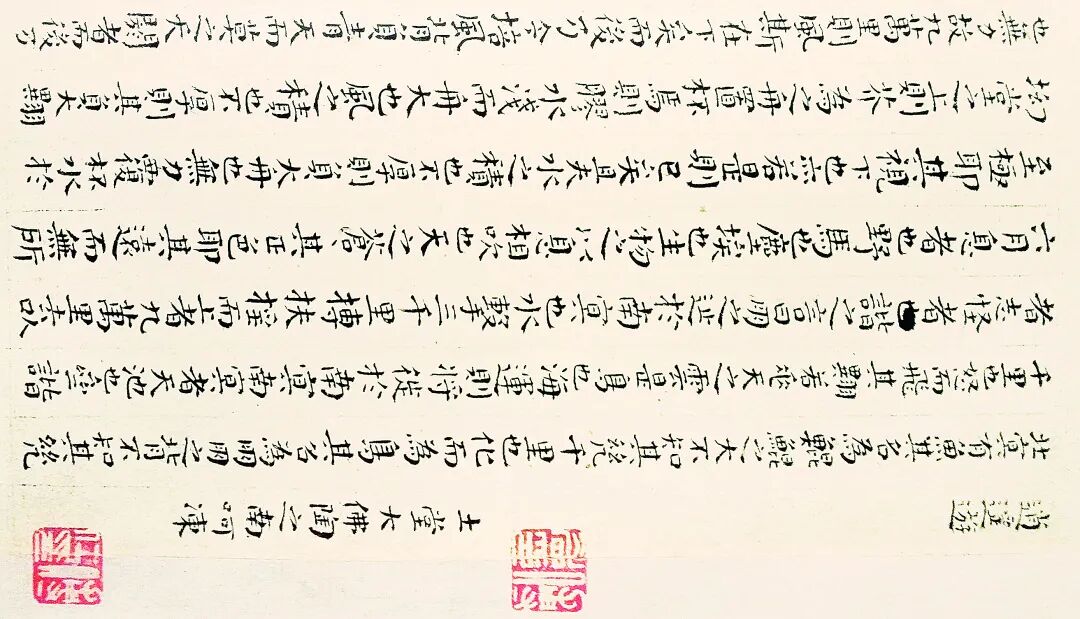 逍遙遊　土堂大佛陶之南呵凍
北冥有魚其名為鯤鯤之大不知其幾千里也化而為鳥其名為鵬鵬之背不知其幾
千里也怒而飛其翼若垂天之雲是鳥也海運則將徙於南冥南冥者天池也齊諧
者志怪者也諧之言曰鵬之徙於南冥也水擊三千里摶扶搖而上者九萬里去以
六月息者也野馬也塵埃也生物之以息相吹也天之蒼〻其正色耶其遠而無所
至極耶其視下也亦若是則已矣且夫水之積也不厚則負大舟也無力覆杯水於
坳堂之上則芥為之舟置杯焉則膠水淺而舟大也風之積也不厚則其負大翼
也無力故九萬里則風斯在下矣而後乃今培風背負青天而莫之夭閼者而後乃